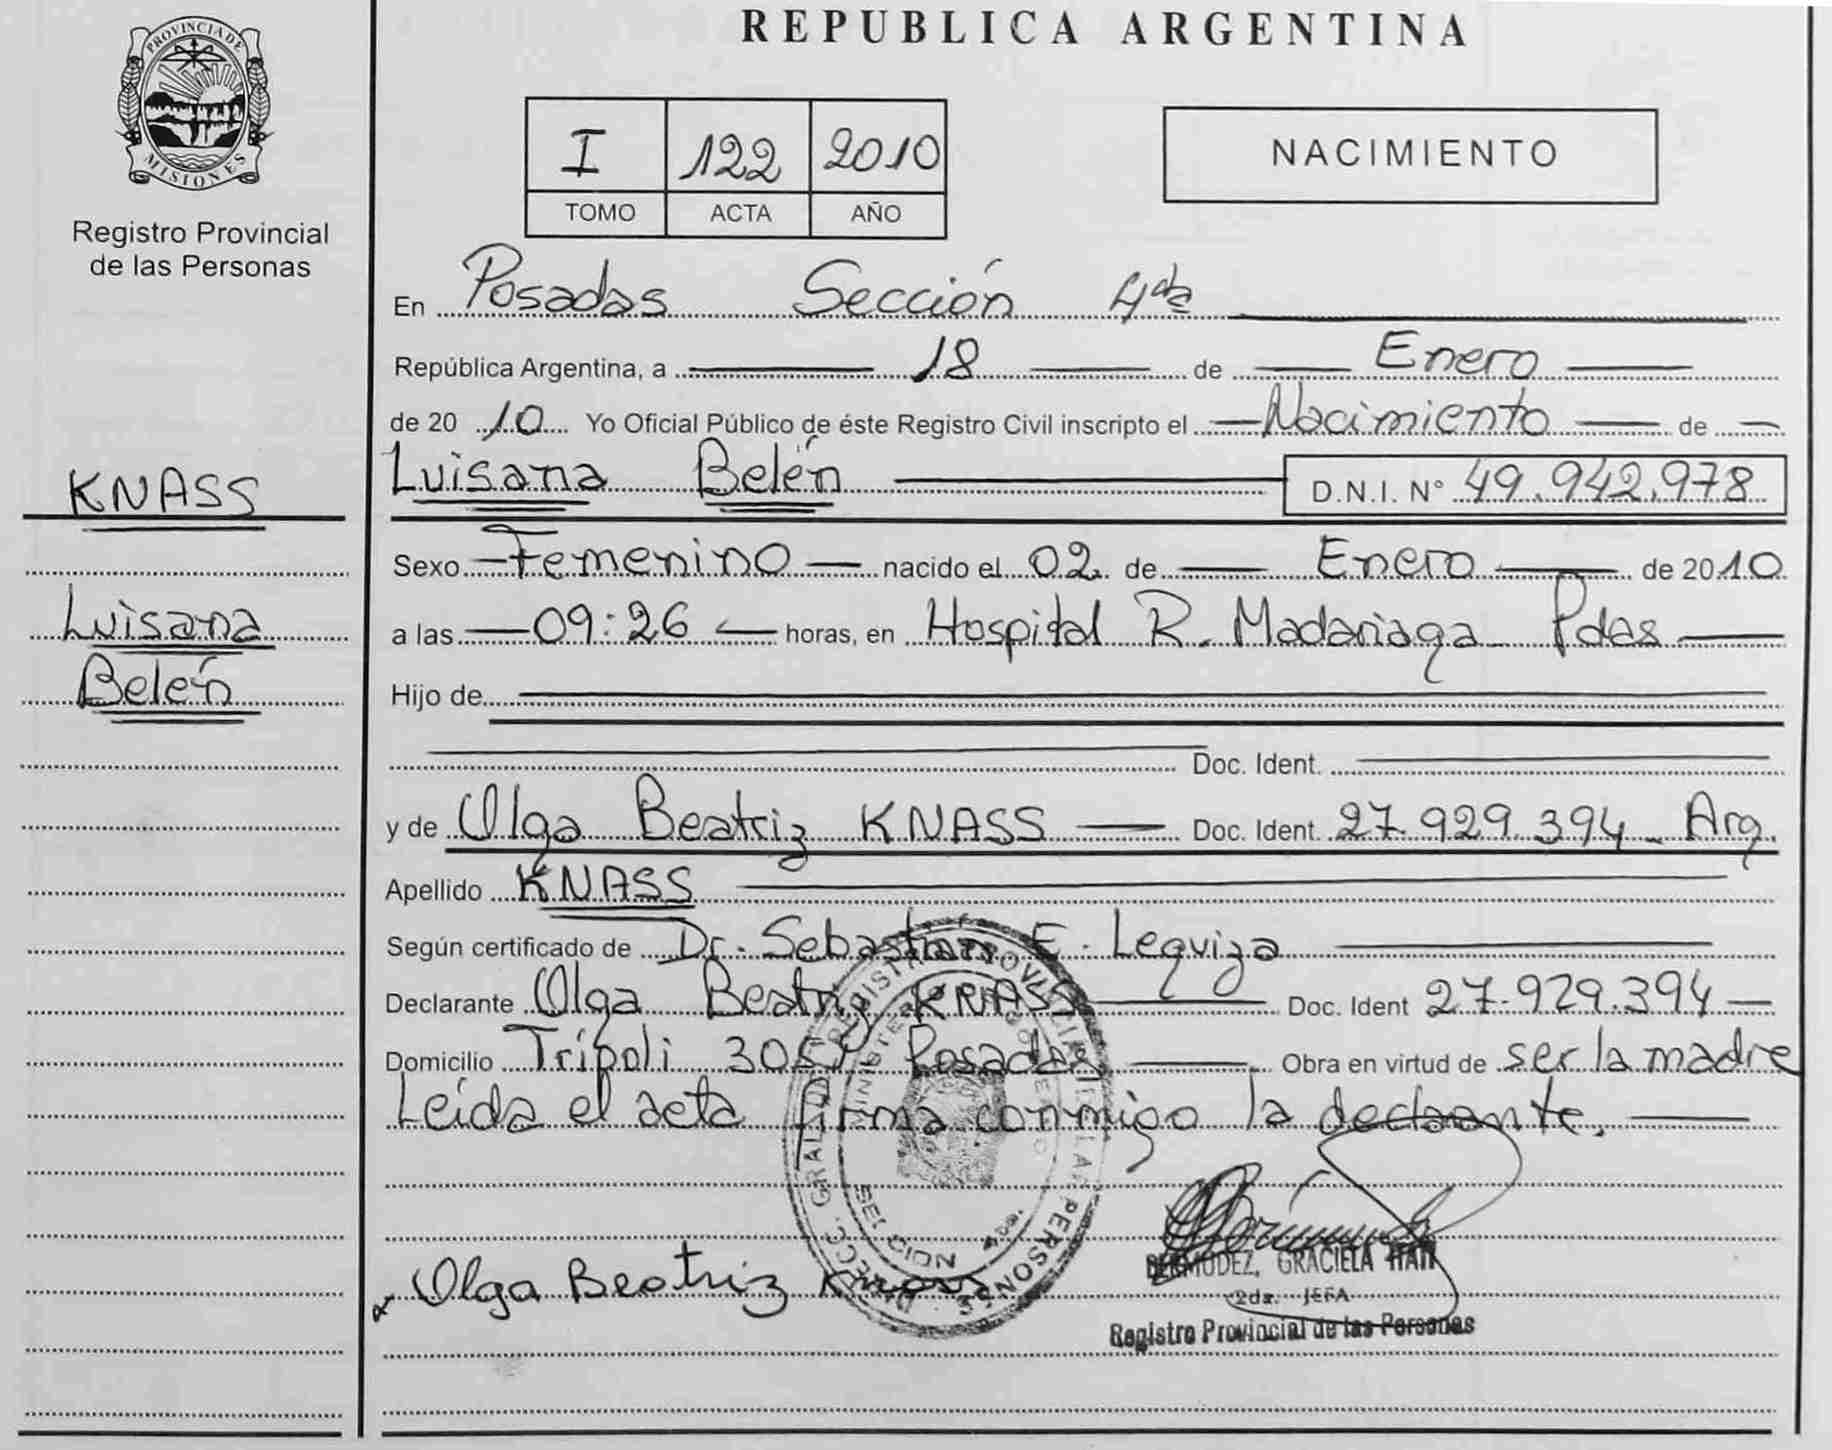 PROVINCIA DE
MISIONES
Registro Provincial
de las Personas
KNASS
Luisana
Belén
REPUBLICA ARGENTINA
I 122 2010
TOMO ACTA AÑO
NACIMIENTO
En Posadas Sección 4da
República Argentina, a 18 de Enero
de 2010 Yo Oficial Público de éste Registro Civil inscripto el Nacimiento de
Luisana Belén D.N.I. N° 49.942.978
Sexo Femenino nacido el 02 de Enero de 2010
a las 09:26 horas, en Hospital R. Madariaga Pdas
Hijo de
Doc. Ident.
y de Olga Beatriz KNASS Doc. Ident. 27.929.394 Arg.
Apellido KNASS
Según certificado de Dr. Sebastian E. Leguiza
Declarante Olga Beatriz KNASS Doc. Ident 27.929.394
Domicilio Trípoli Posadas Obra en virtud de ser la madre
Leída el acta firma conmigo la declarante.
Olga Beatriz Knass
BERMUDEZ, GRACIELA
2da. JEFA
Registro Provincial de las Personas